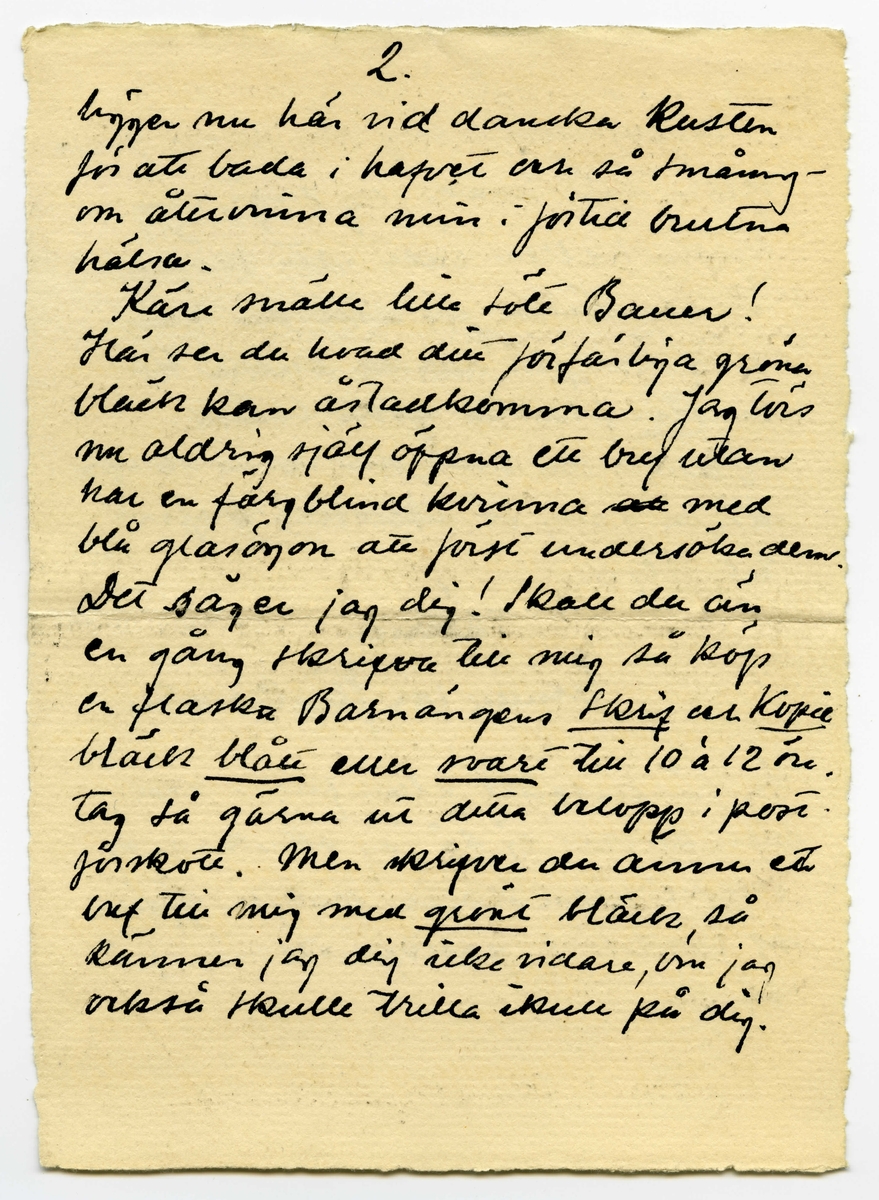 2.
ligger nu här vid danska kusten
för att bada i hafvet och så småning-
om återvinna min i förtid brutna
hälsa.
Käre snälle lille söte Bauer!
Här ser du hvad ditt förfärliga gröna
bläck kan åstadkomma. Jag törs
nu aldrig själf öppna ett bref utan
har en färgblind kvinna med
blå glasögon att först undersöka dem.
Det säger jag dig! Skall du än
en gång skrifva till mig så köp
en flaska Barnängens Skrif och Kopie
bläck blått eller svart till 10 à 12 öre.
tag så gärna ut detta belopp i post-
förskott. Men skrifver du ännu ett
bref till mig med grönt bläck, så
känner jag dig icke vidare, om jag
också skulle trilla ikull på dig.